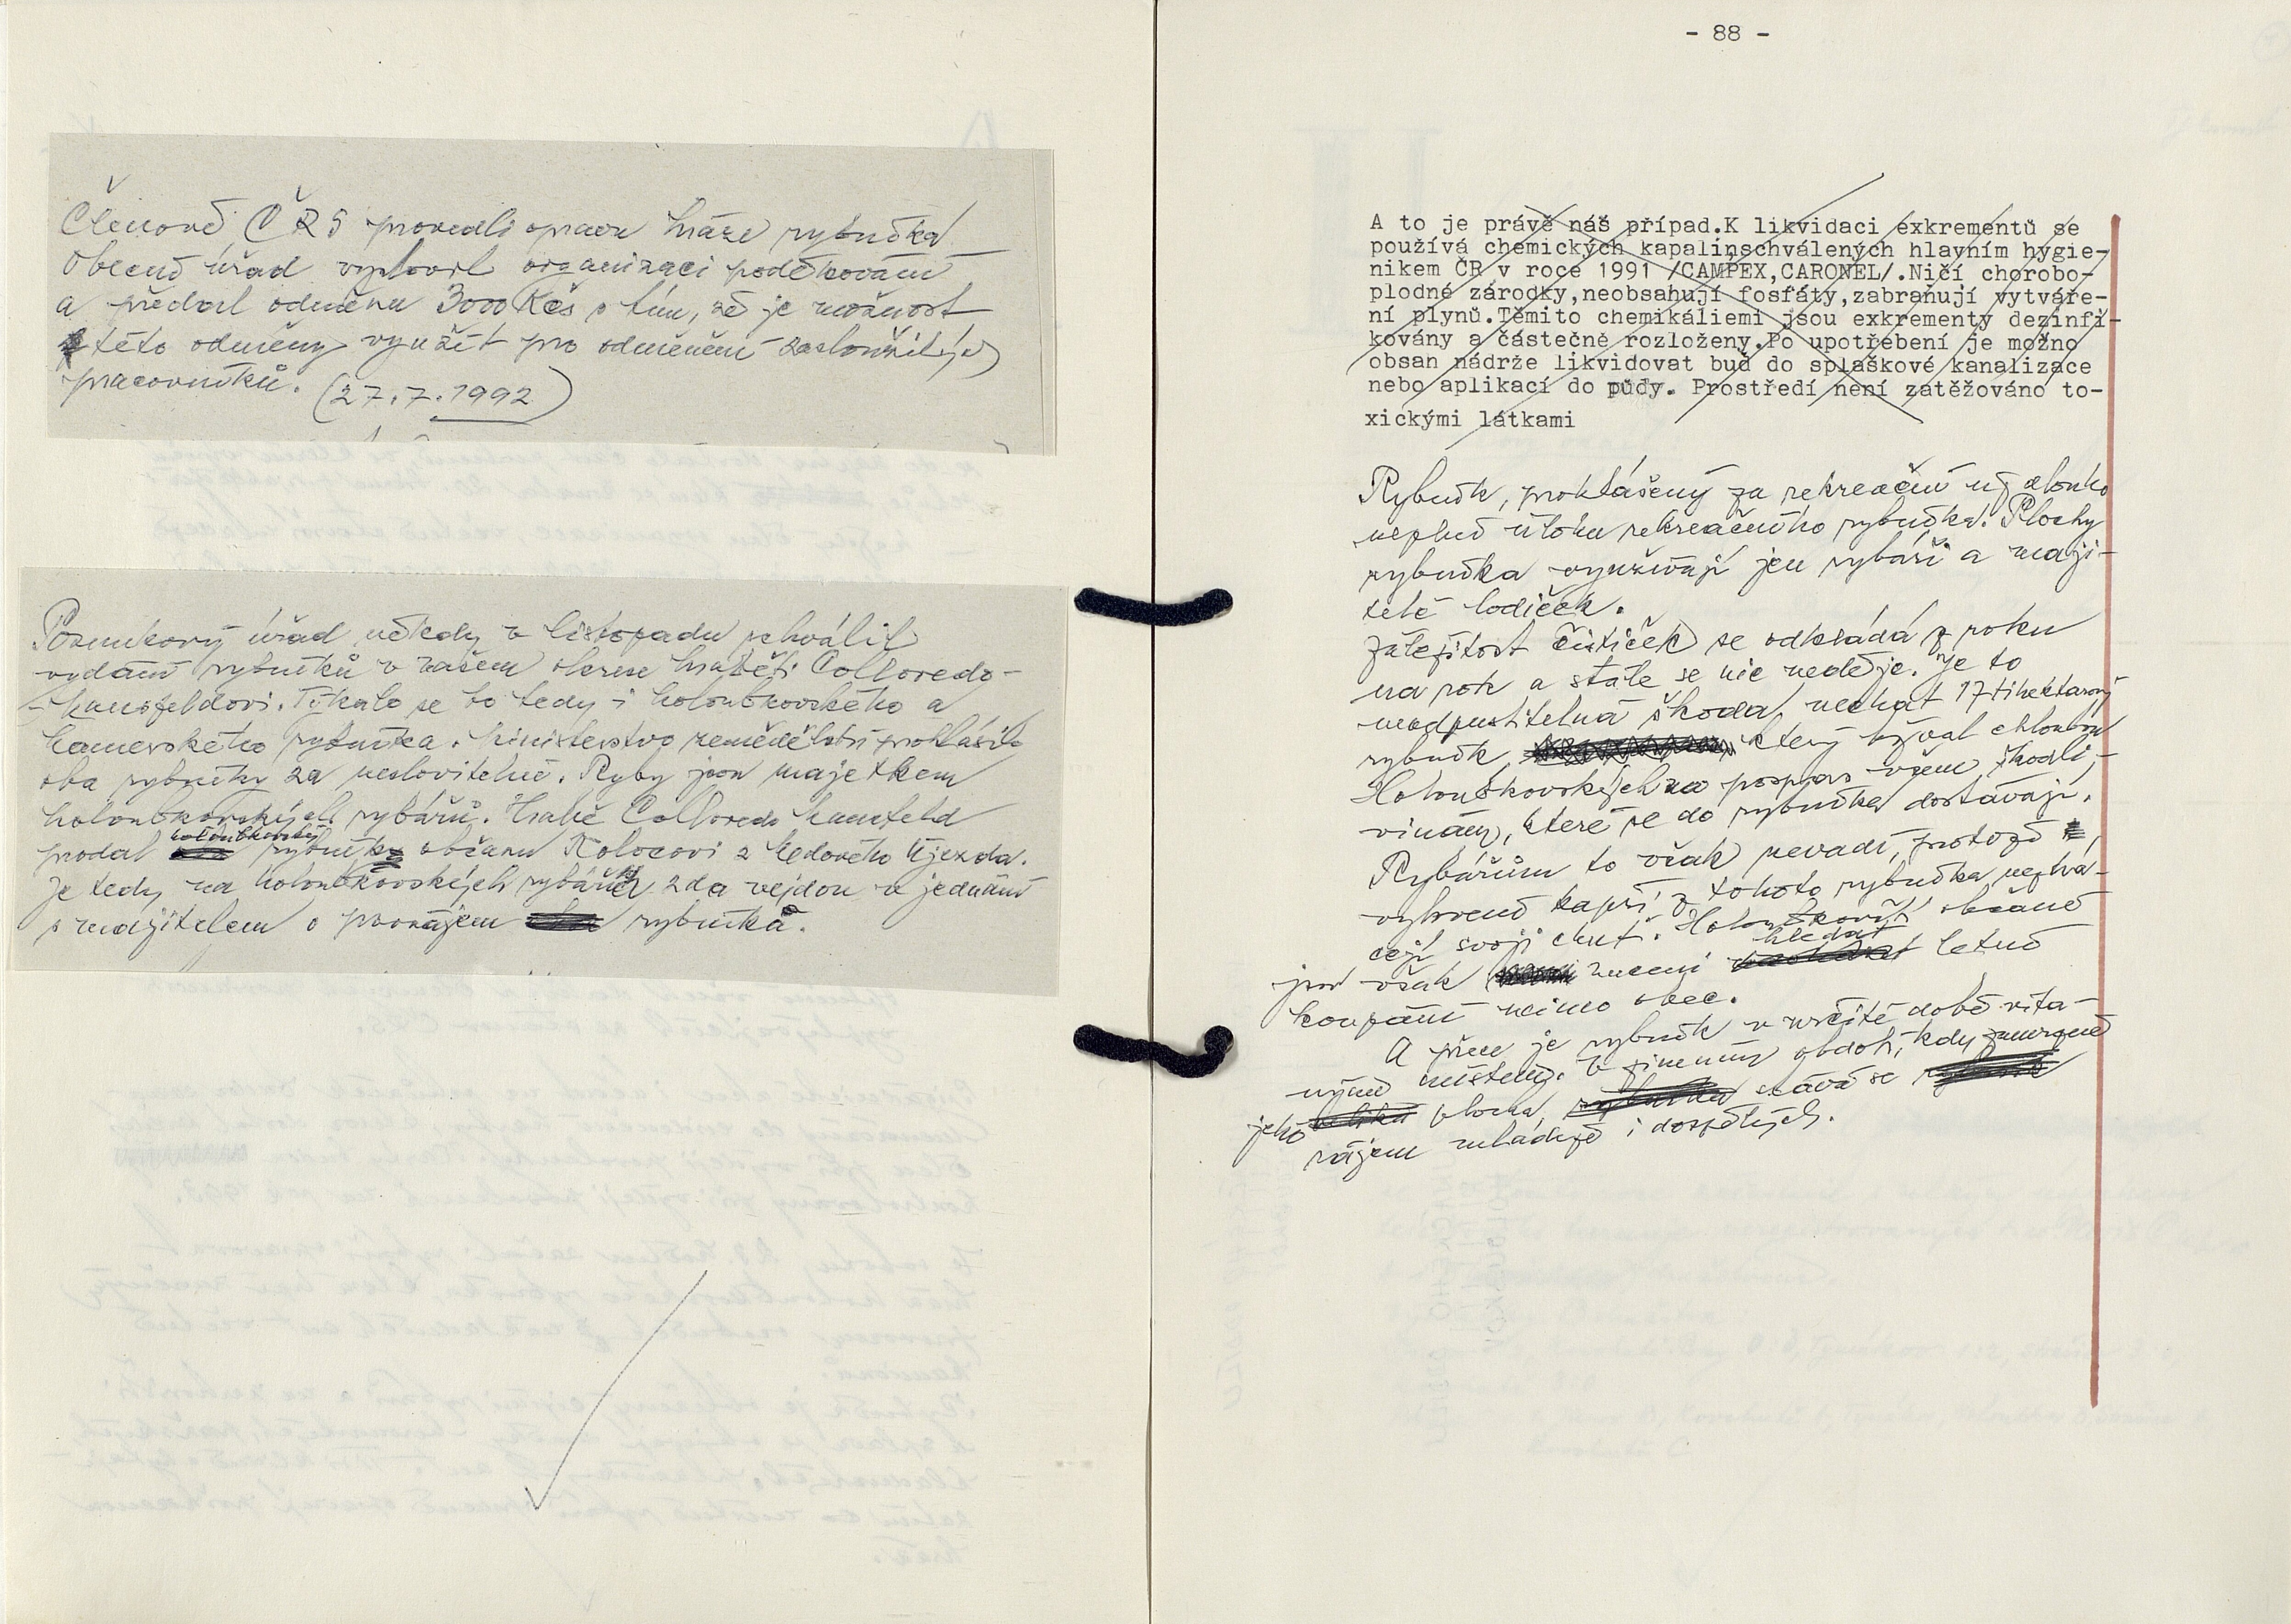 Členové ČRS provedli opravu hráze rybníka
Obecní úřad vyslovil organizaci poděkování
a předal odměnu 3000 Kčs s tím, že je možnost
této odměny využít pro odměnění zasloužilých
pracovníků. (27.7.1992)
Pozemkový úřad někdy v listopadu schválil
vydání rybníků v našem okrese hraběti Colloredo-
Mansfeldovi. Týkalo se to tedy i holoubkovského a
hamerského rybníka. Ministerstvo zemědělství prohlásilo
oba rybníky za neslovitelné. Ryby jsou majetkem
holoubkovských rybářů. Hrabě Colloredo Mansfeld
prodal holoubkovský rybník občanu Kolocovi z Medového Újezda.
Je tedy na holoubkovských rybářích zda vejdou v jednání
s majitelem o pronájem rybníka.
- 88 -
A to je právě náš případ.K likvidaci exkrementů se
používá chemických kapalinschválených hlavním hygie-
nikem ČR v roce 1991 /CAMPEX,CARONEL/.Ničí chorobo-
plodné zárodky,neobsahují fosfáty,zabraňují vytváře-
ní plynů.Těmito chemikáliemi jsou exkrementy dezinfi-
kovány a částečně rozloženy.Po upotřebení je možno
obsah nádrže likvidovat buď do splaškové kanalizace
nebo aplikací do půdy. Prostředí není zatěžováno to-
xickými látkami
Rybník, prohlášený za rekreační už dlouho
neplní úlohu rekreačního rybníka. Plochy
rybníka využívají jen rybáři a maji-
telé lodiček.
Záležitost čističek se odkládá z roku
na rok a stále se nic neděje. Je to
neodpustitelná škoda, nechat 17tihektarový
rybník, který býval chloubou
Holoubkovských na pospas všem škodli-
vinám, které se do rybníka dostávají.
Rybářům to však nevadí, protože
vylovení kapři z tohoto rybníka neztrá-
cejí svoji chuť. Holoubkovští občané
jsou však nuceni hledat letní
koupání mimo obec.
A přece je rybník v určité době víta-
ným místem. V zimním období, kdy zamrzne
jeho plocha, stává se
rájem mládeže i dospělých.